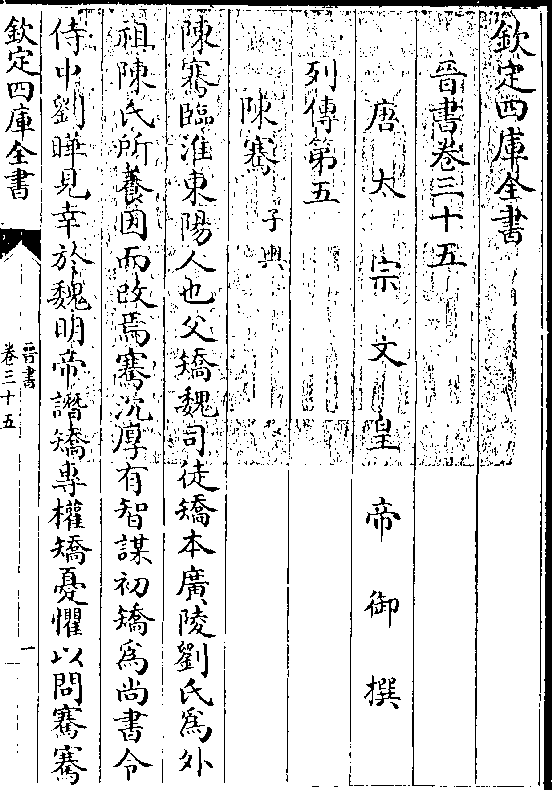 欽定四庫全書
晉書卷三十五
唐太宗文皇帝御撰
列傳第五
陳騫 子輿
陳騫臨淮東陽人也父矯魏司徒矯本廣陵劉氏為外
祖陳氏所養因而改焉騫沉厚有智謀初矯為尚書令
侍中劉曄見幸於魏明帝譖矯專權矯憂懼以問騫騫
欽定四庫全書
晉書
卷三十五
一